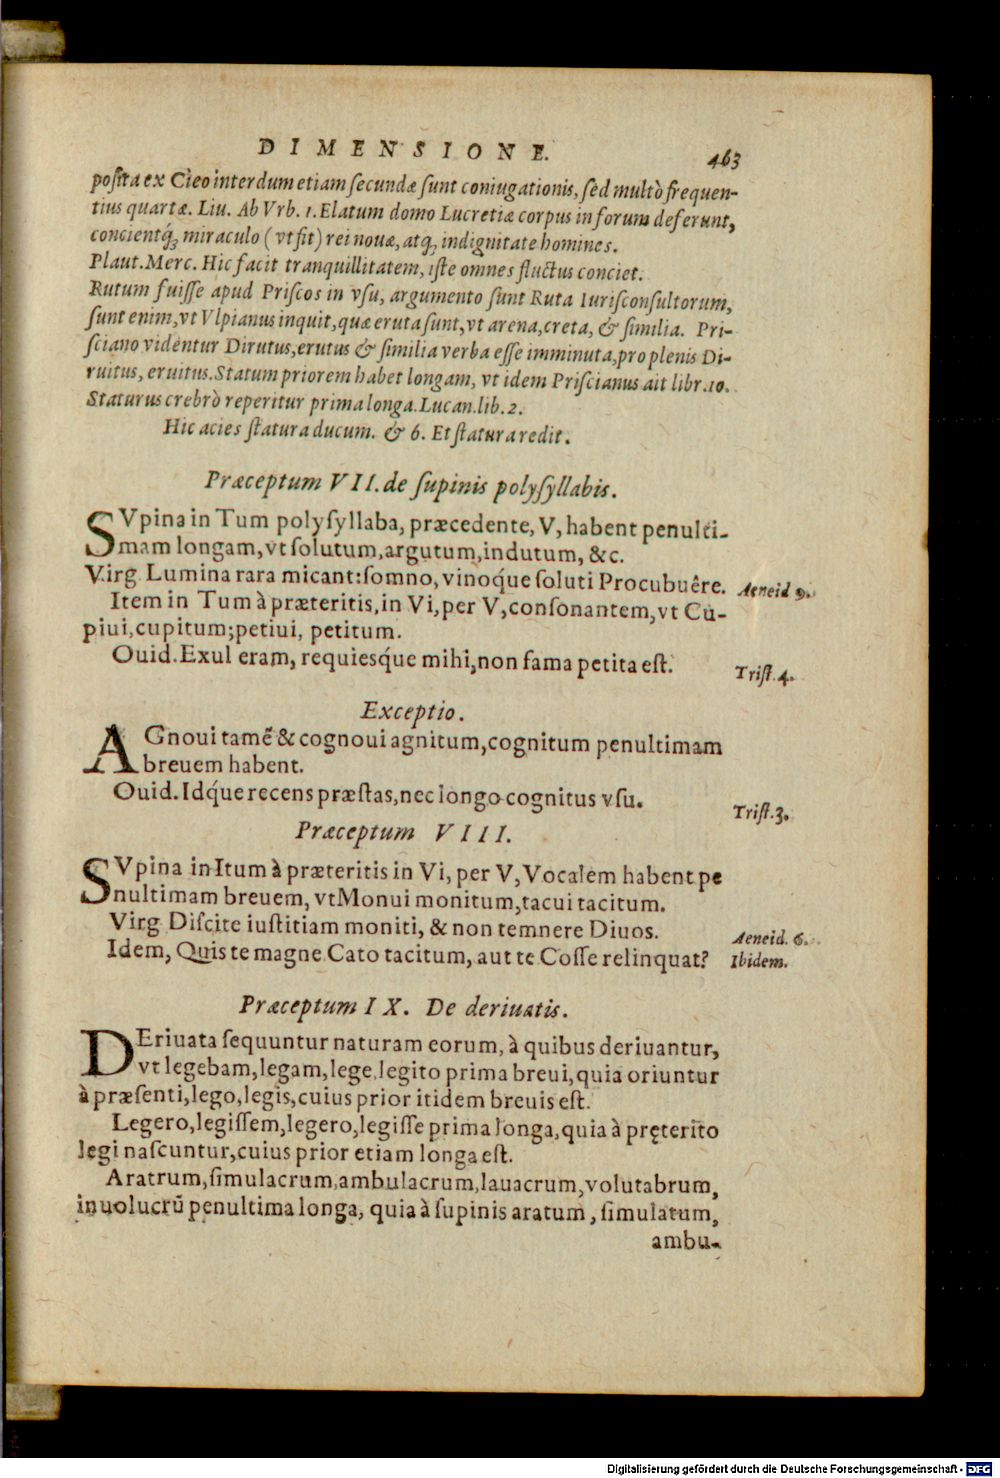 DIMENSIONE. 463
posita ex Cieo interdum etiam secundæ sunt coniugationis, sed multò frequen-
tius quartæ. Liu. Ab Vrb. 1. Elatum domo Lucretiæ corpus in forum deferunt,
concientq́; miraculo (vt fit) rei nouæ, atq́; indignitate homines.
Plaut. Merc. Hic facit tranquillitatem, iste omnes fluctus conciet.
Rutum fuisse apud Priscos in vsu, argumento sunt Ruta Iurisconsultorum,
sunt enim, vt Vlpianus inquit, quæ eruta sunt, vt arena, creta, & similia. Pri-
sciano videntur Dirutus, erutus & similia verba esse imminuta, pro plenis Di-
ruitus, eruitus. Statum priorem habet longam, vt idem Priscianus ait libr. 10.
Staturus crebrò reperitur prima longa. Lucan. lib. 2.
Hic acies statura ducum. & 6. Et statura redit.
Præceptum VII. de supinis polysyllabis.
SVpina in Tum polysyllaba, præcedente, V, habent penulti-
mam longam, vt solutum, argutum, indutum, &c.
Virg. Lumina rara micant: somno, vinoq́ue soluti Procubuêre. Aeneid 9.
Item in Tum à præteritis, in Vi, per V, consonantem, vt Cu-
piui, cupitum; petiui, petitum.
Ouid. Exul eram, requiesq́ue mihi, non fama petita est. Trist. 4.
Exceptio.
AGnoui tamē & cognoui agnitum, cognitum penultimam
breuem habent.
Ouid. Idq́ue recens præstas, nec longo cognitus vsu. Trist. 3.
Præceptum VIII.
SVpina in Itum à præteritis in Vi, per V, Vocalem habent pe
nultimam breuem, vt Monui monitum, tacui tacitum.
Virg. Discite iustitiam moniti, & non temnere Diuos. Aeneid. 6.
Idem, Quis te magne Cato tacitum, aut te Cosse relinquat? Ibidem.
Præceptum IX. De deriuatis.
DEriuata sequuntur naturam eorum, à quibus deriuantur,
vt legebam, legam, lege, legito prima breui, quia oriuntur
à præsenti, lego, legis, cuius prior itidem breuis est.
Legero, legissem, legero, legisse prima longa, quia à pręterito
legi nascuntur, cuius prior etiam longa est.
Aratrum, simulacrum, ambulacrum, lauacrum, volutabrum,
inuolucrū penultima longa, quia à supinis aratum, simulatum,
ambu-
Digitalisierung gefördert durch die Deutsche Forschungsgemeinschaft - DFG